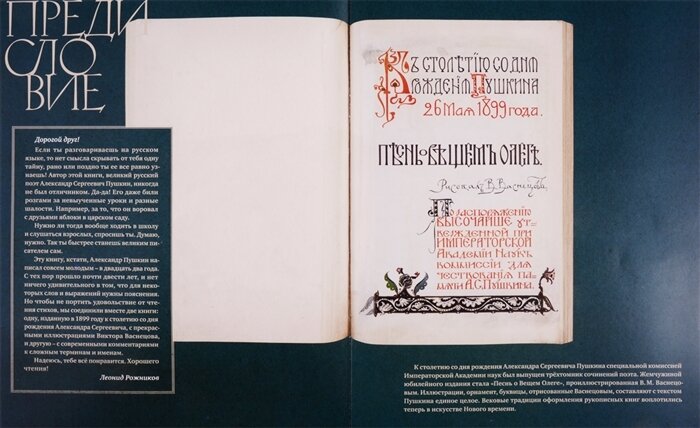 ПРЕДИ
СЛО
ВИЕ
Дорогой друг!
Если ты разговариваешь на русском
языке, то нет смысла скрывать от тебя одну
тайну, рано или поздно ты ее все равно уз-
наешь! Автор этой книги, великий русский
поэт Александр Сергеевич Пушкин, никогда
не был отличником. Да-да! Его даже били
розгами за невыученные уроки и разные
шалости. Например, за то, что он воровал
с друзьями яблоки в царском саду.
Нужно ли тогда вообще ходить в школу
и слушаться взрослых, спросишь ты. Думаю,
нужно. Так ты быстрее станешь великим пи-
сателем сам.
Эту книгу, кстати, Александр Пушкин на-
писал совсем молодым – в двадцать два года.
С тех пор прошло почти двести лет, и нет
ничего удивительного в том, что для неко-
торых слов и выражений нужны пояснения.
Но чтобы не портить удовольствие от чте-
ния стихов, мы соединили вместе две книги:
одну, изданную в 1899 году к столетию со дня
рождения Александра Сергеевича, с прекрас-
ными иллюстрациями Виктора Васнецова,
и другую – с современными комментариями
к сложным терминам и именам.
Надеюсь, тебе всё понравится. Хорошего
чтения!
Леонид Рожников
Въ столѣтію со дня
Рожденія Пушкина
26 мая 1899 года.
Пѣснь о вѣщемъ Олегѣ.
Рисовалъ В. Васнецовъ.
По распоряженію
высочайше ут-
вержденной при
Императорской
Академіи Наукъ
комиссіи для
чествованія па-
мяти А.С. Пушкина.
К столетию со дня рождения Александра Сергеевича Пушкина специальной комиссией
Императорской Академии наук был выпущен трёхтомник сочинений поэта. Жемчужиной
юбилейного издания стала «Песнь о Вещем Олеге», проиллюстрированная В. М. Васнецо-
вым. Иллюстрации, орнамент, буквицы, отрисованные Васнецовым, составляют с текстом
Пушкина единое целое. Вековые традиции оформления рукописных книг воплотились
теперь в искусстве Нового времени.